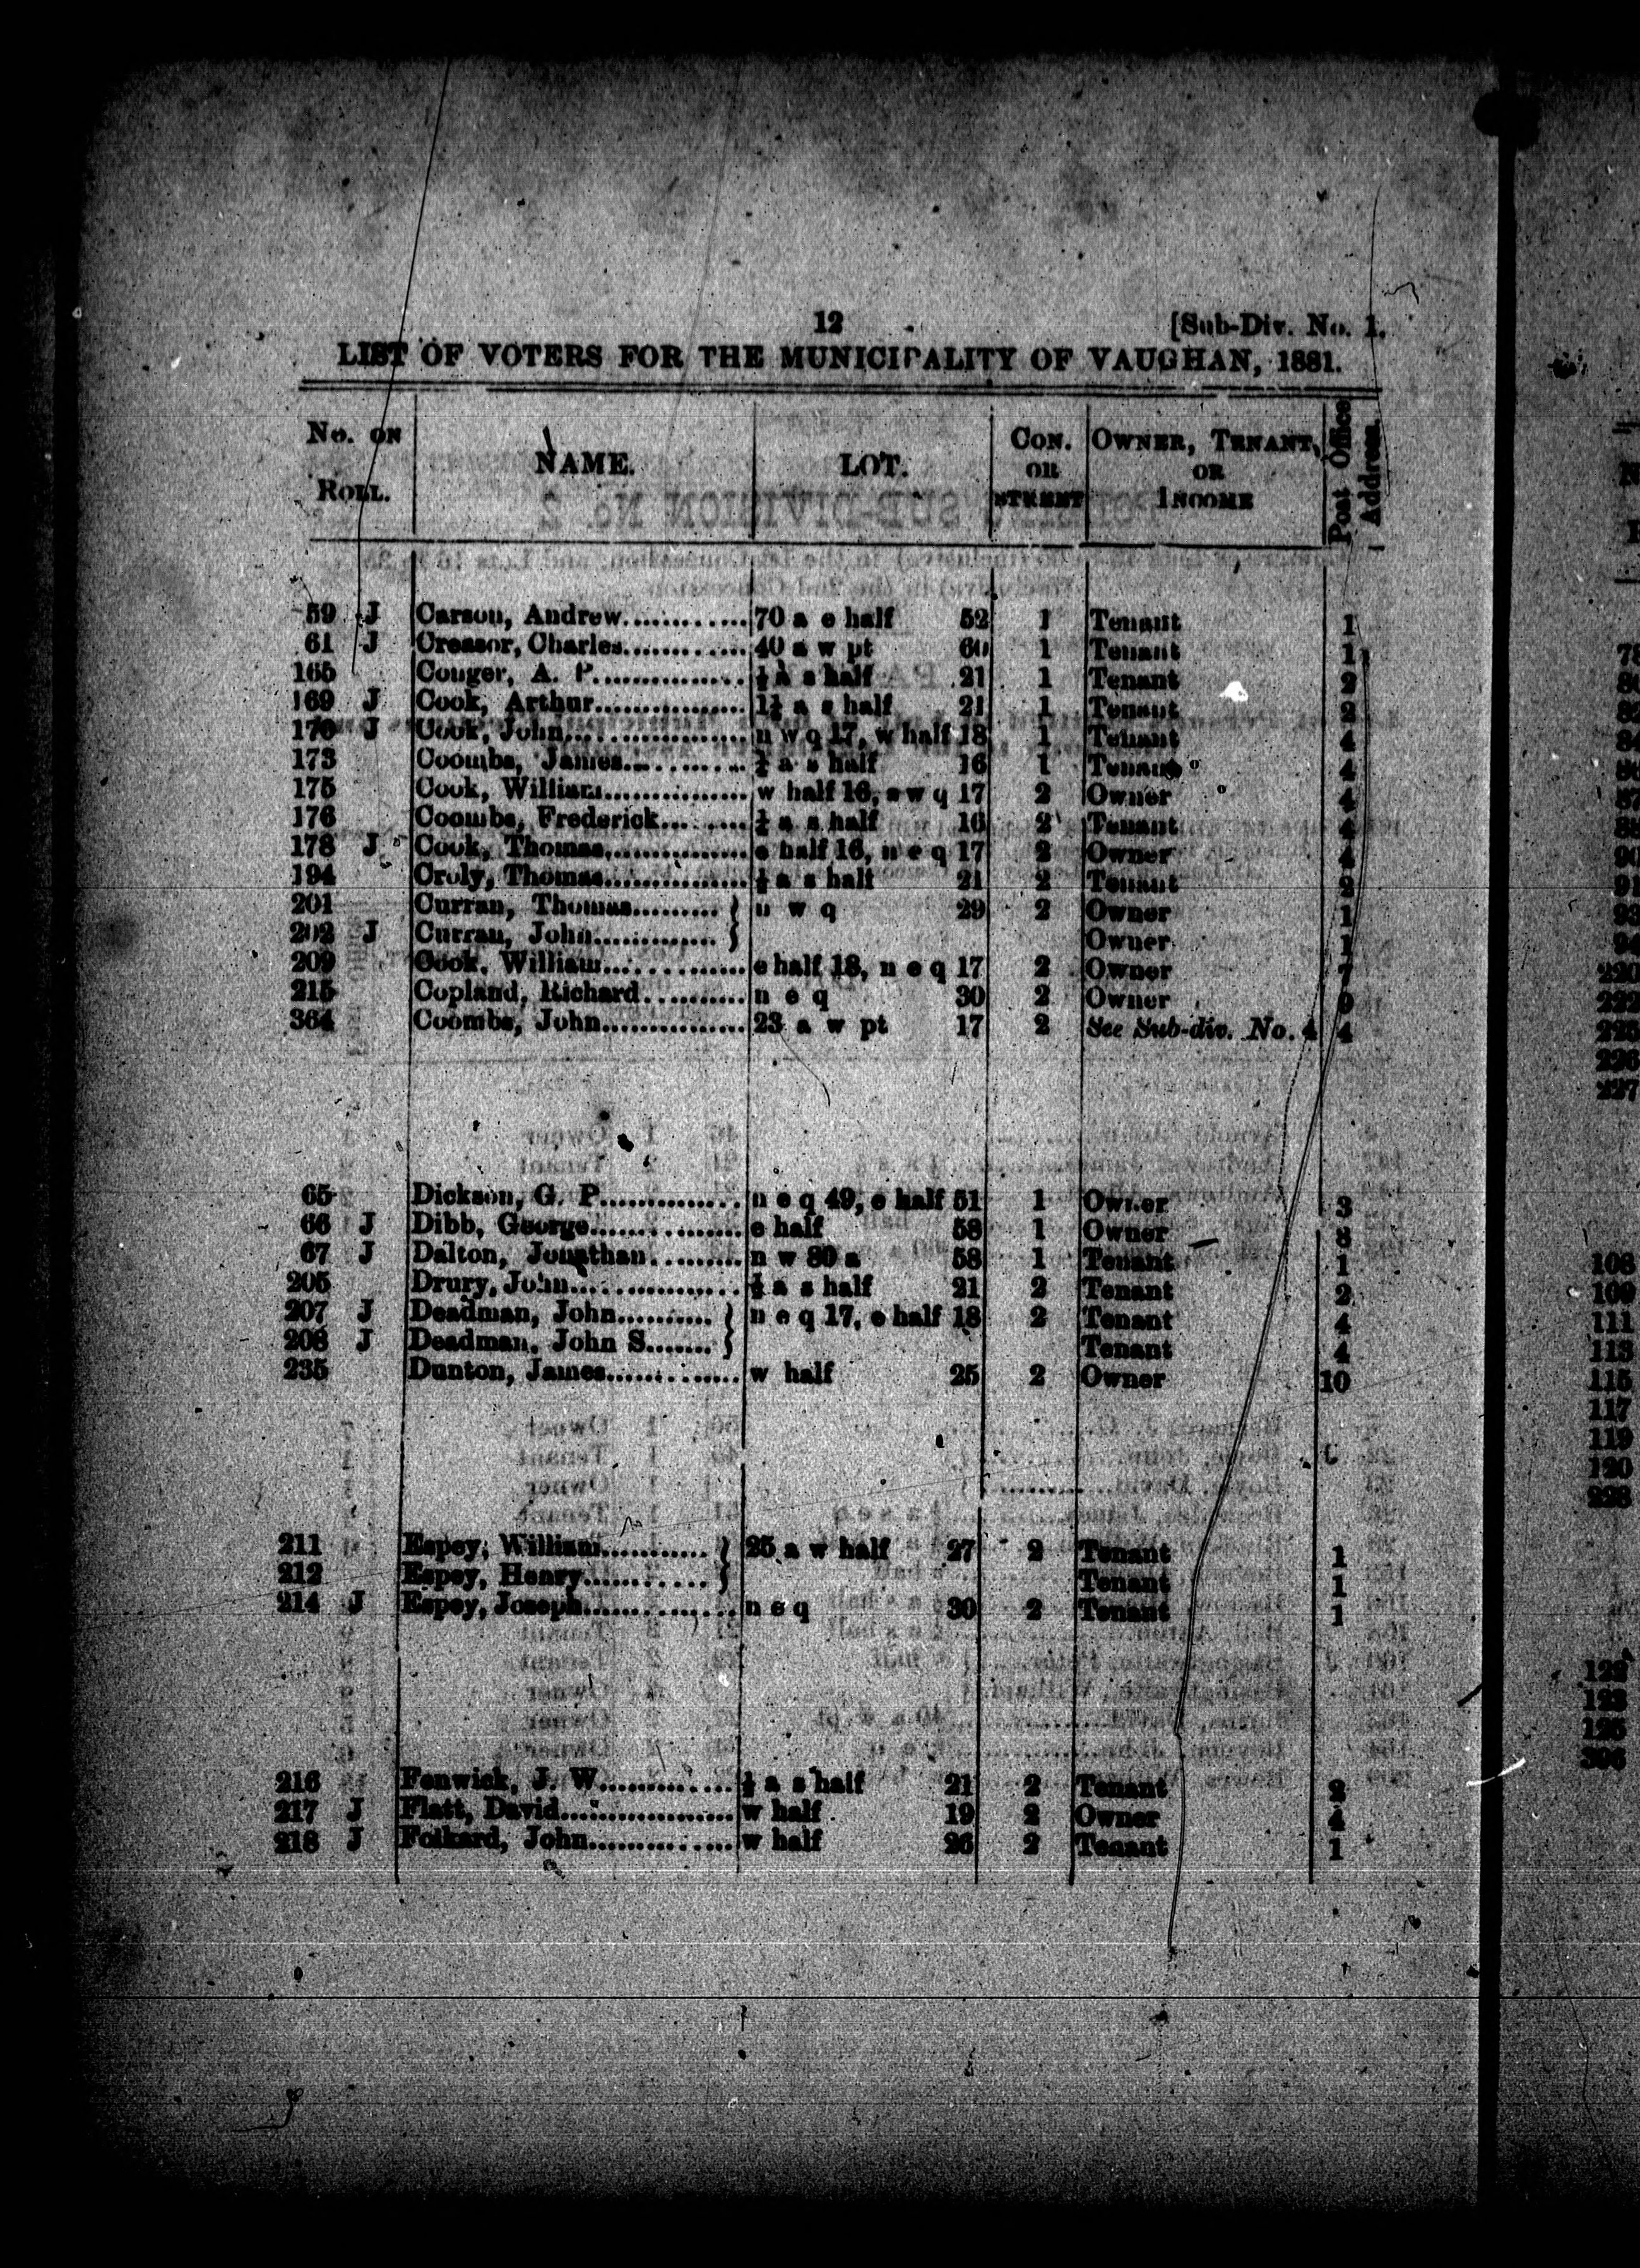 12 [Sub-Div. No. 1.
LIST OF VOTERS FOR THE MUNICIPALITY OF VAUGHAN, 1881.
No. ON ROLL. NAME. LOT. CON. OR STREET OWNER, TENANT, OR INCOME Post Office Address.
59 J Carson, Andrew............ 70 a e half 52 1 Tenant 1
61 J Creasor, Charles............ 40 a w pt 60 1 Tenant 1
165 Conger, A. P............... ½ a s half 21 1 Tenant 2
169 J Cook, Arthur................ 1½ a s half 21 1 Tenant 2
170 J Cook, John.................. n w q 17, w half 18 1 Tenant 4
173 Coombs, James............ ½ a s half 16 1 Tenant 4
175 Cook, William............... w half 16, s w q 17 2 Owner 4
176 Coombs, Frederick......... ½ a s half 16 2 Tenant 4
178 J Cook, Thomas............... e half 16, n e q 17 2 Owner 4
194 Croly, Thomas............... ½ a s half 21 2 Tenant 2
201 Curran, Thomas......... } n w q 29 2 Owner 1
202 J Curran, John............. } Owner 1
209 Cook, William............... e half 18, n e q 17 2 Owner 7
215 Copland, Richard........... n e q 30 2 Owner 9
364 Coombs, John............... 23 a w pt 17 2 See Sub-div. No. 4 4
65 Dickson, G. P.............. n e q 49, e half 51 1 Owner 3
66 J Dibb, George............... e half 58 1 Owner 3
67 J Dalton, Jonathan......... n w 80 a 58 1 Tenant 1
205 Drury, John................. ½ a s half 21 2 Tenant 2
207 J Deadman, John.......... } n e q 17, e half 18 2 Tenant 4
208 J Deadman, John S....... } Tenant 4
235 Dunton, James.............. w half 25 2 Owner 10
211 Espey, William............ } 25 a w half 27 2 Tenant 1
212 Espey, Henry............ } Tenant 1
214 J Espey, Joseph............... n e q 30 2 Tenant 1
216 Fenwick, J. W.............. ½ a s half 21 2 Tenant 2
217 J Flatt, David.................. w half 19 2 Owner 4
218 J Folkard, John............... w half 26 2 Tenant 1